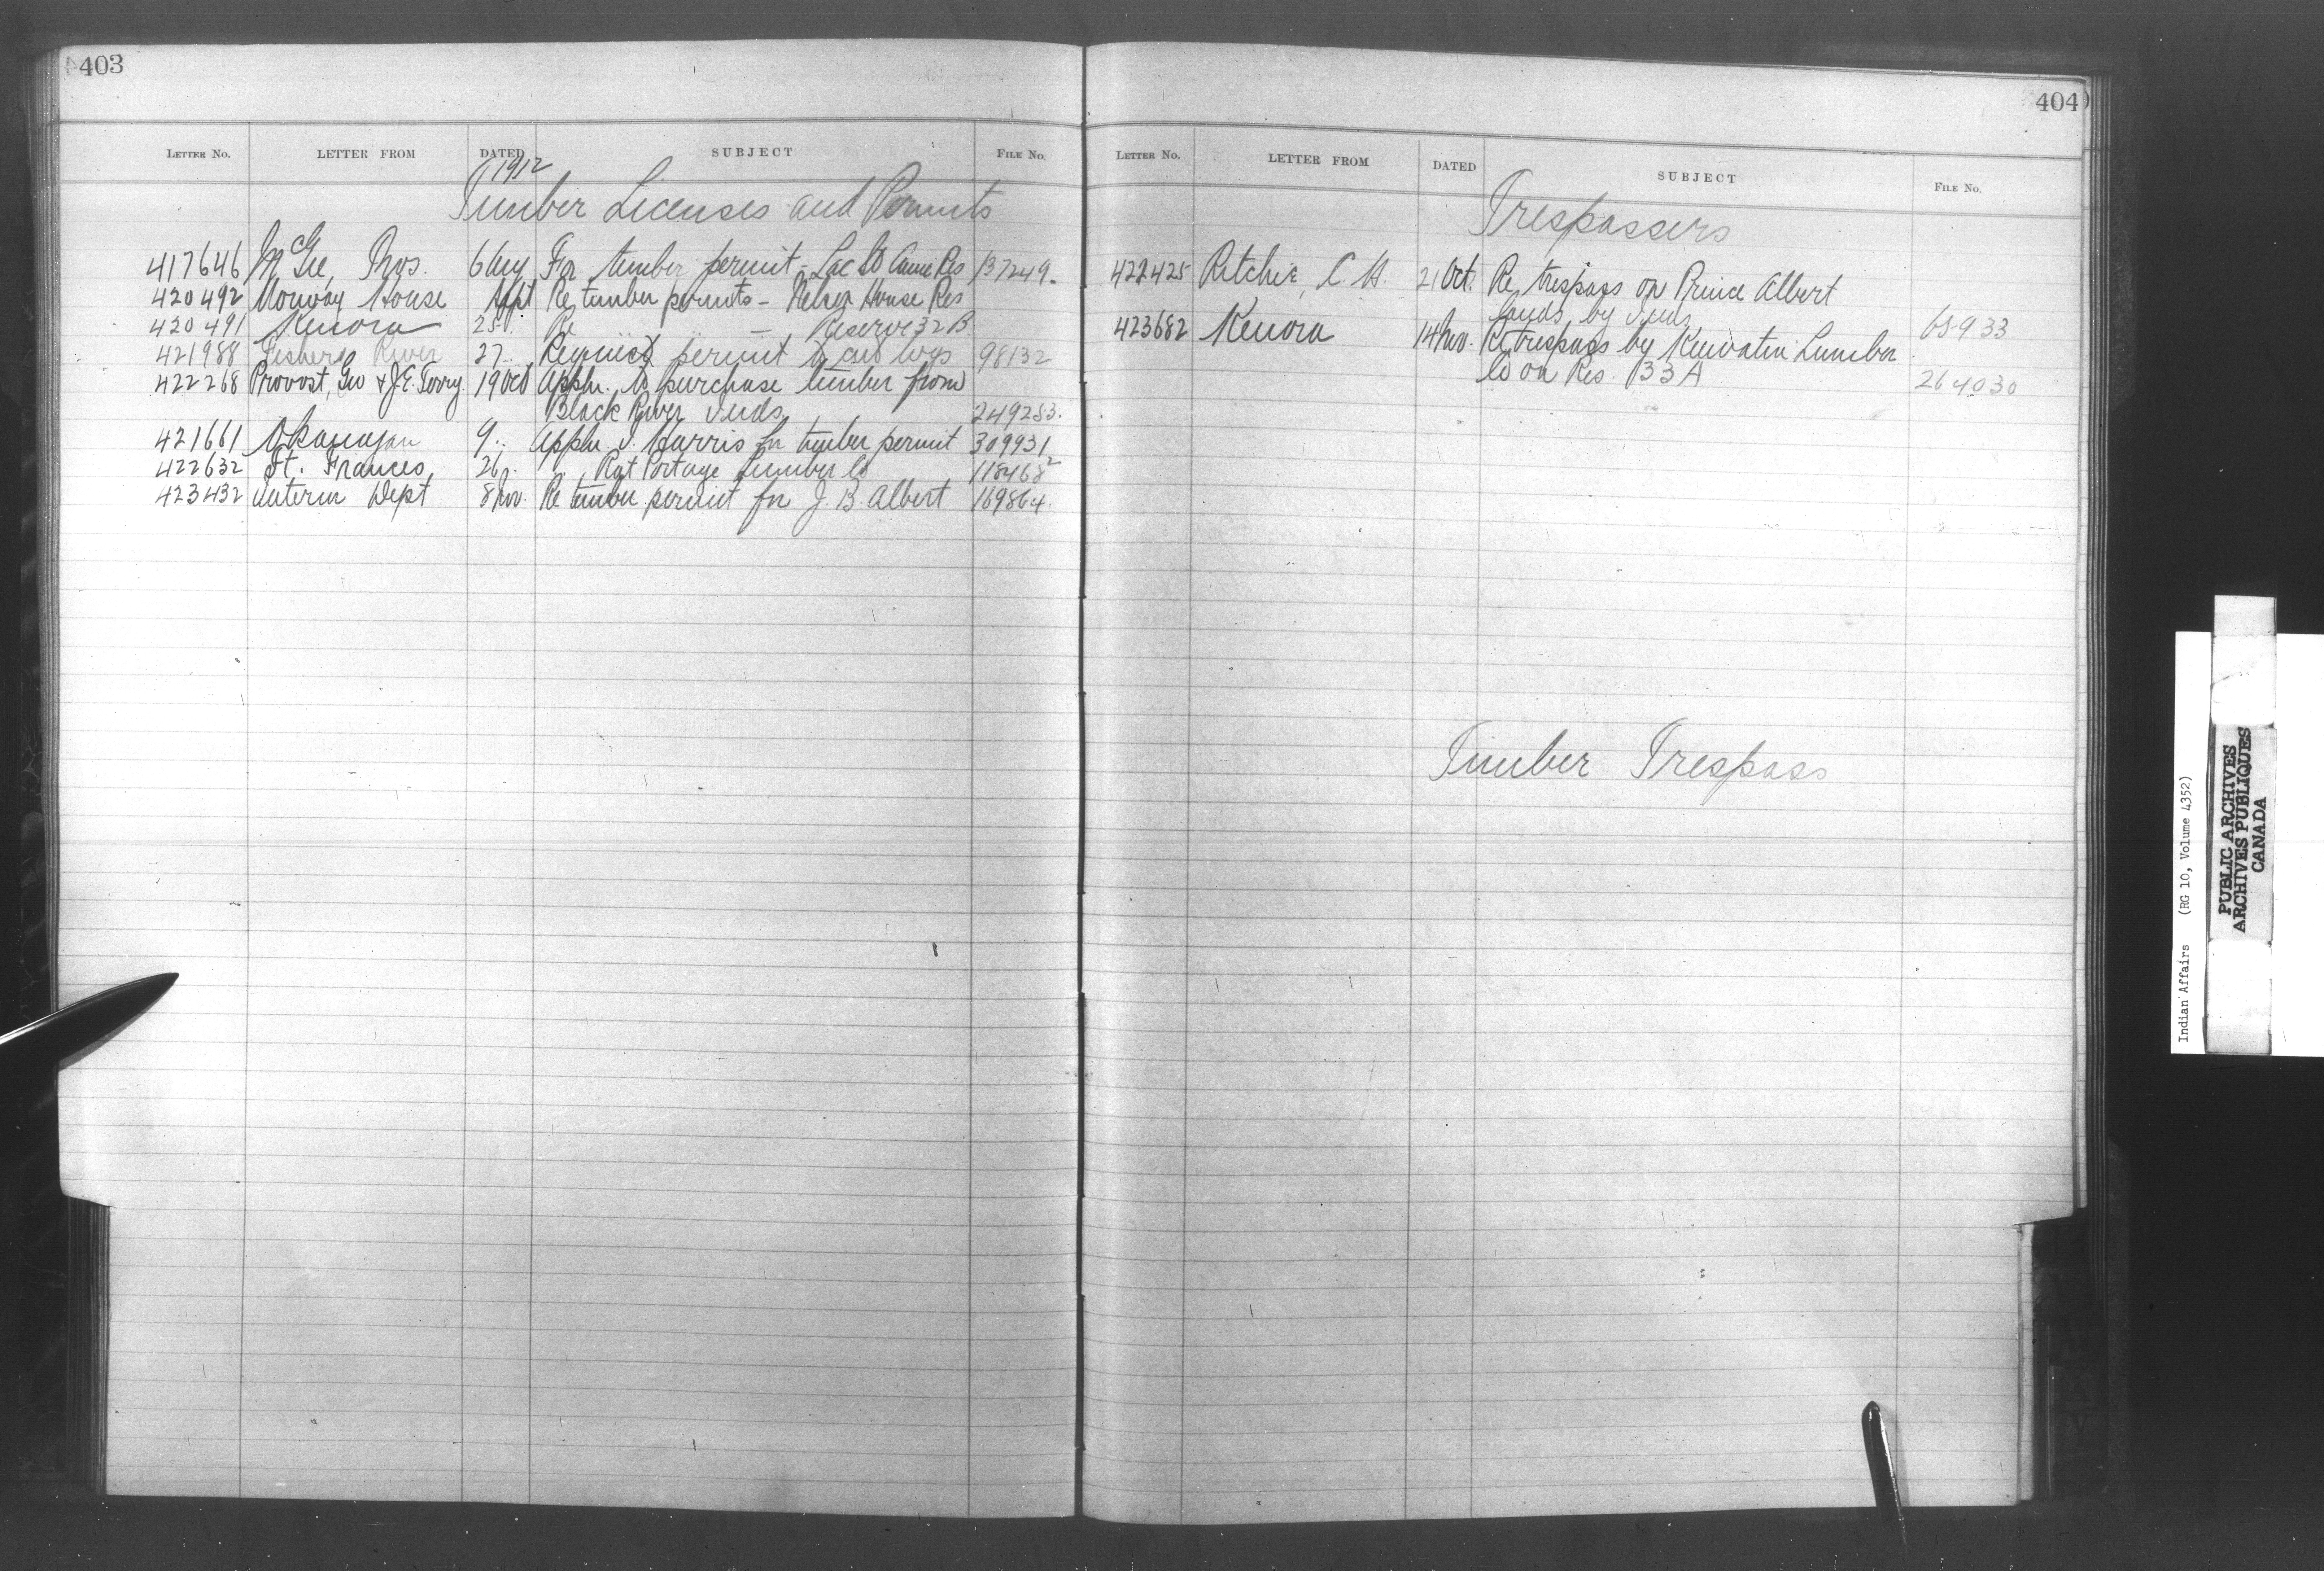 403
LETTER NO. LETTER FROM DATED SUBJECT FILE NO.
1912
Timber Licenses and Permits
417646 McGee, Thos. 6 Aug For timber permit - Lac St Anne Res 137249.
420492 Norway House Re timber permits - Nelson House Res
420491 Kenora 25 Re — Reserve 32 B
421988 Fishers River 27 Request permit to cut logs 98132
422268 Provost, Geo & J.E. Terry. 19 Oct Appln. to purchase timber from
Black River Inds. 249283.
421661 Okanagan 9 .. Appln J. Harris for timber permit 309931
422632 Ft. Frances 26 .. Rat Portage Lumber Co 118468²
423432 Interior Dept 8 Nov. Re timber permit for J. B. Albert 169864.
404
LETTER NO. LETTER FROM DATED SUBJECT FILE NO.
Trespassers
422425 Ritchie, C. H. 21 Oct. Re trespass on Prince Albert
lands by Inds 65933
423682 Kenora 14 Nov. Re trespass by Keewatin Lumber
Co on Res. 33 A 264030
Timber Trespass
Indian Affairs (RG 10, Volume 4352)
PUBLIC ARCHIVES
ARCHIVES PUBLIQUES
CANADA